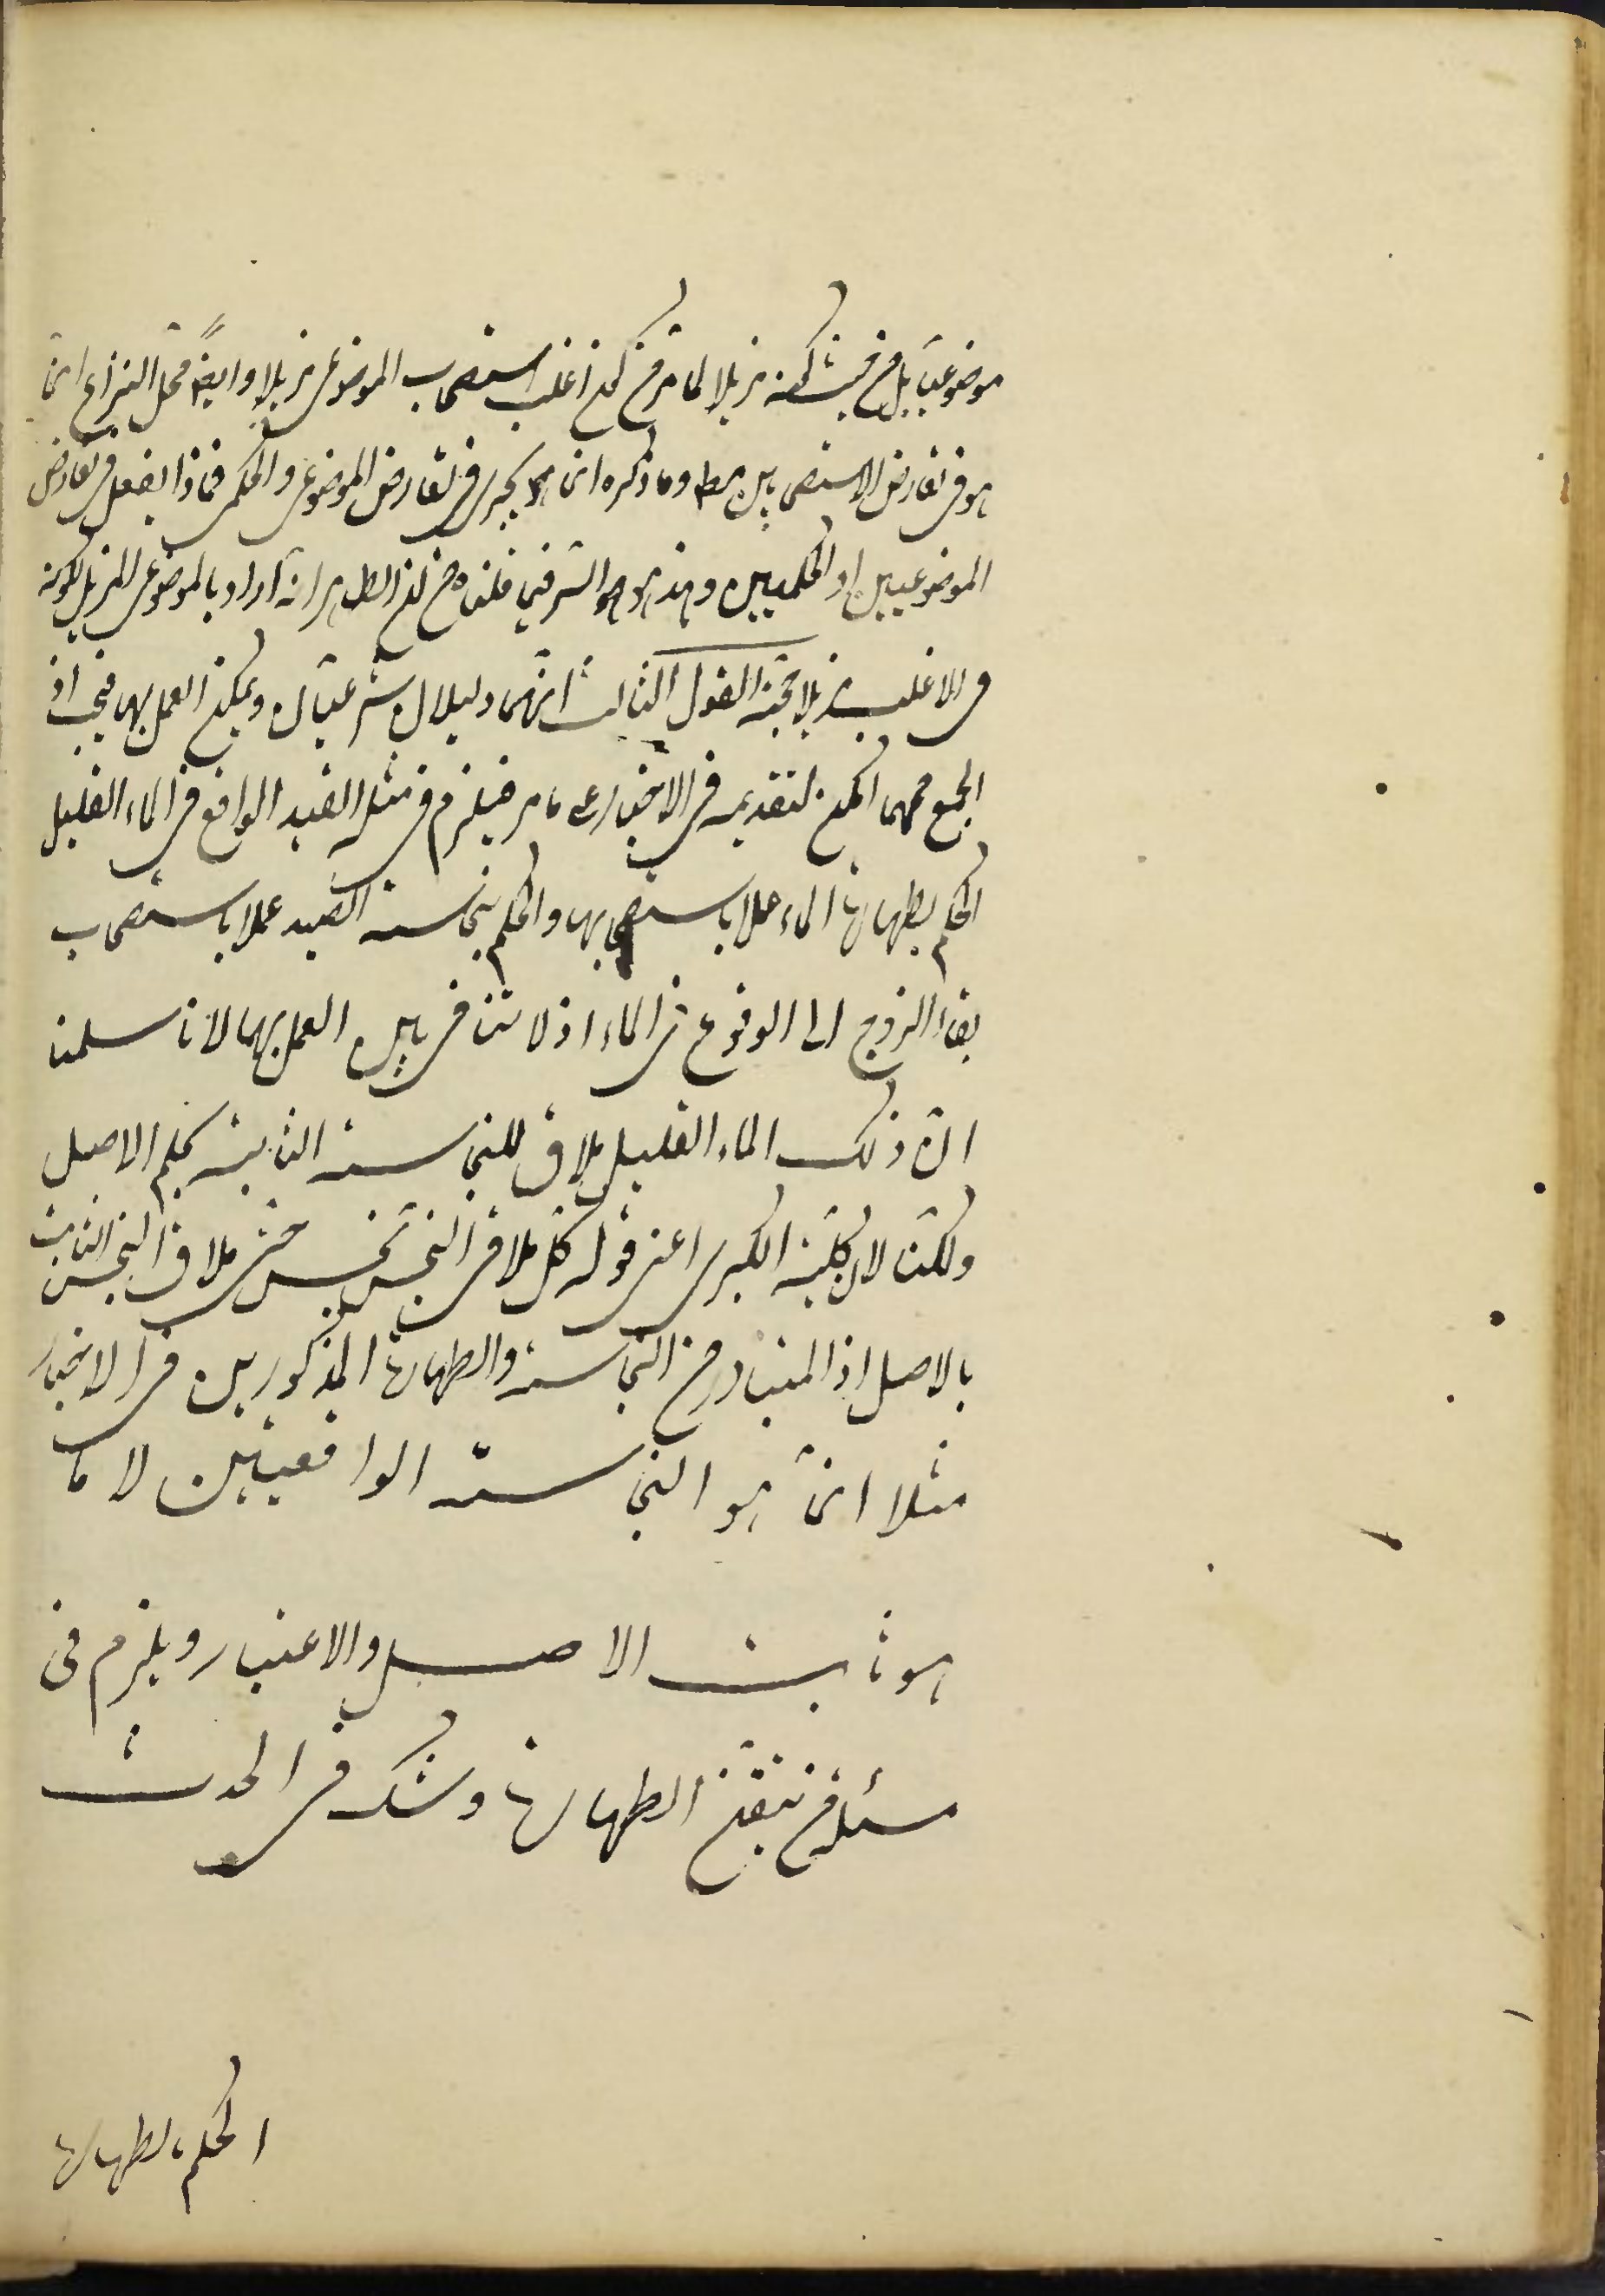 موضوعیا بل من حیث کونه مزیلا لما مر من کون اغلب استصحاب الموضوعی مزیلا وایضا محل النزاع انما
هو فی تعارض الاستصحابین مط وما ذکره انما یجری فی تعارض الموضوعی والحکمی فماذا یفعل فی تعارض
الموضوعیین او الحکمیین وهذا هو الشرفی قلناه من ان الظاهر انه اراد بالموضوعی المزیل لکونه
فی الاغلب مزیلا حجة القول الثالث انهما دلیلان شرعیان ویمکن العمل بهما فیجب اذ
الجمع مهما امکن لتقدیمه فی الاخبار علی ما مر فیلزم فی مثل الصید الواقع فی الماء القلیل
الحکم بطهارة الماء عملا باستصحابها والحکم بنجاسة الصید عملا باستصحاب
بقاء الروح الی الوقوع فی الماء اذ لا تنافی بین العمل بهما لانا سلمنا
ان ذلک الماء القلیل ملاق للنجاسة الثابتة بحکم الاصل
ولکنا لان کلیة الکبری اعنی قوله کل ملاقی النجس نجس حتی ملاقی النجس الثابت
بالاصل اذ المتبادر من النجاسة والطهارة المذکورین فی الاخبار
مثلا انما هو النجاسة الواقعیتین لا ما
هو ثابت الاصل والاعتبار ویلزم فی
مسئلة من تیقن الطهارة وشک فی الحدث
الحکم بطهارة